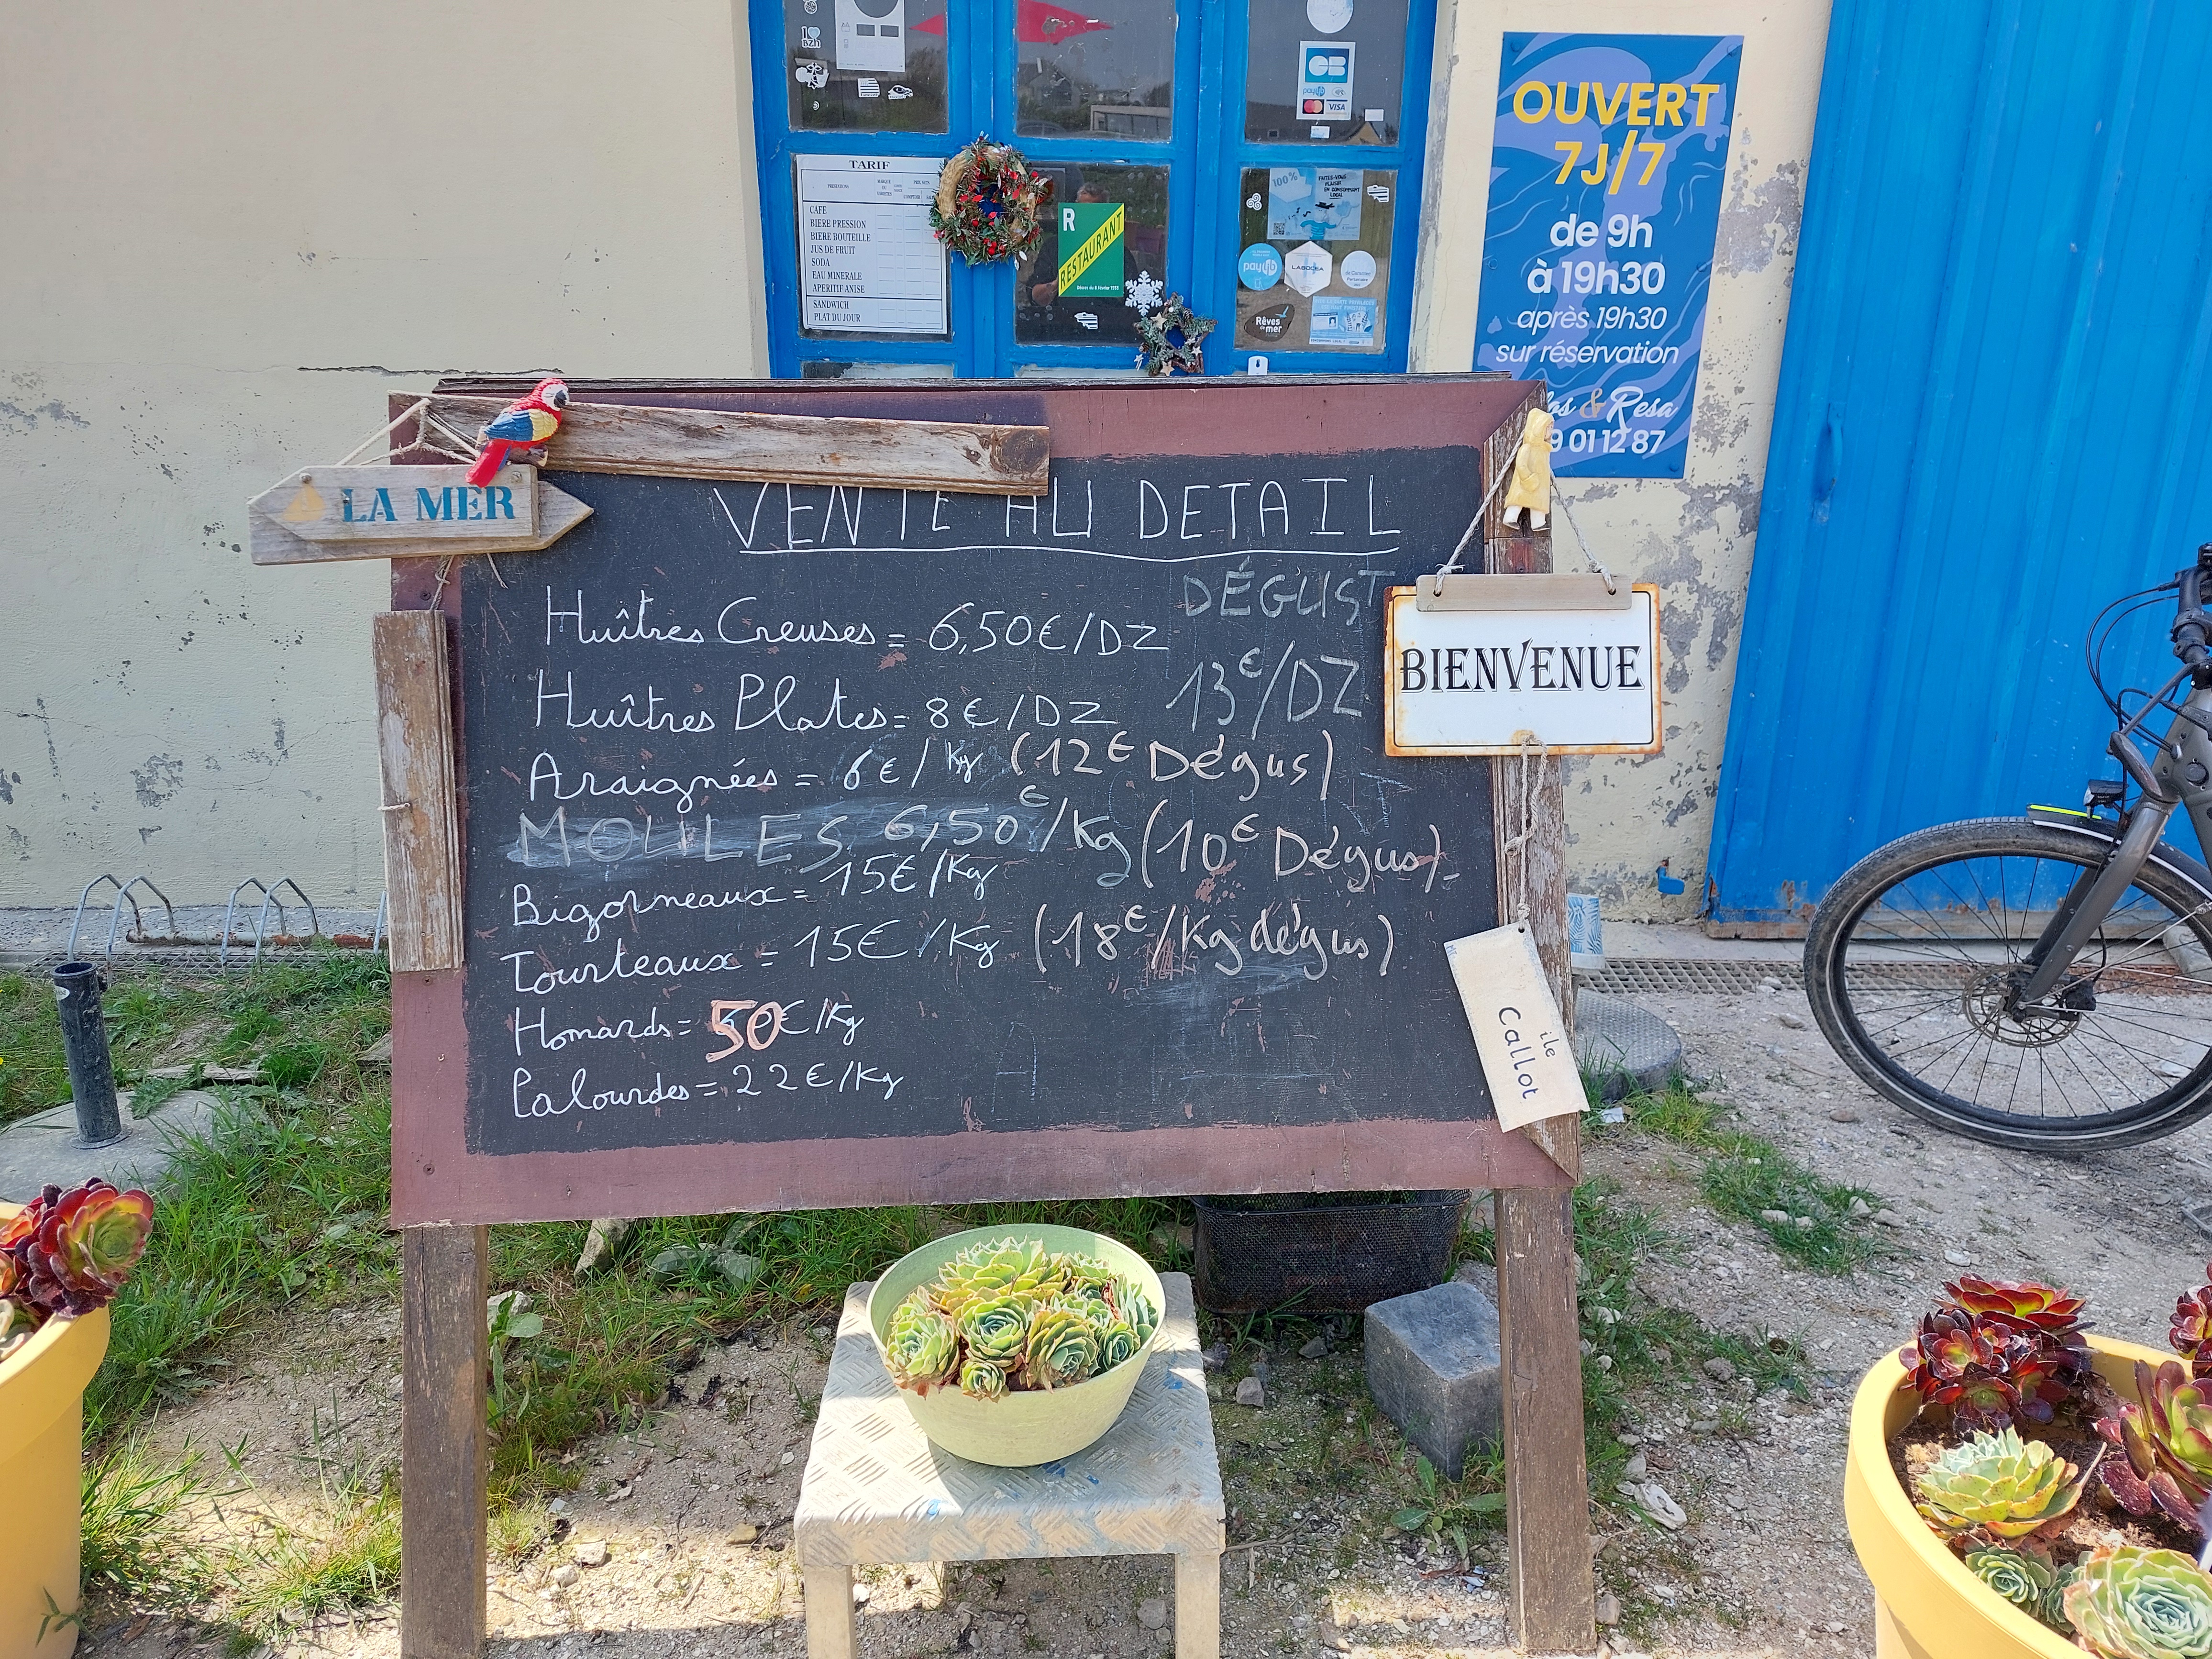 TARIF
CAFE
BIERE PRESSION
BIERE BOUTEILLE
JUS DE FRUIT
SODA
EAU MINERALE
APERITIF ANISE
SANDWICH
PLAT DU JOUR
R
RESTAURANT
CB
VISA
100%
FAITES-VOUS
PLAISIR
EN CONSOMMANT
LOCAL
paylib
LABOCEA
Rêves
de mer
OUVERT
7J/7
de 9h
à 19h30
après 19h30
sur réservation
& Resa
9 01 12 87
LA MER
VENTE AU DETAIL
DÉGUST
Huîtres Creuses = 6,50€/DZ
13€/DZ
Huîtres Plates = 8€/DZ
Araignées = 6€/Kg (12€ Dégus)
MOULES 6,50€/Kg (10€ Dégus)
Bigorneaux = 15€/Kg
Tourteaux = 15€/Kg (18€/Kg dégus)
Homards = 50€/Kg
Palourdes = 22€/Kg
BIENVENUE
île
Callot